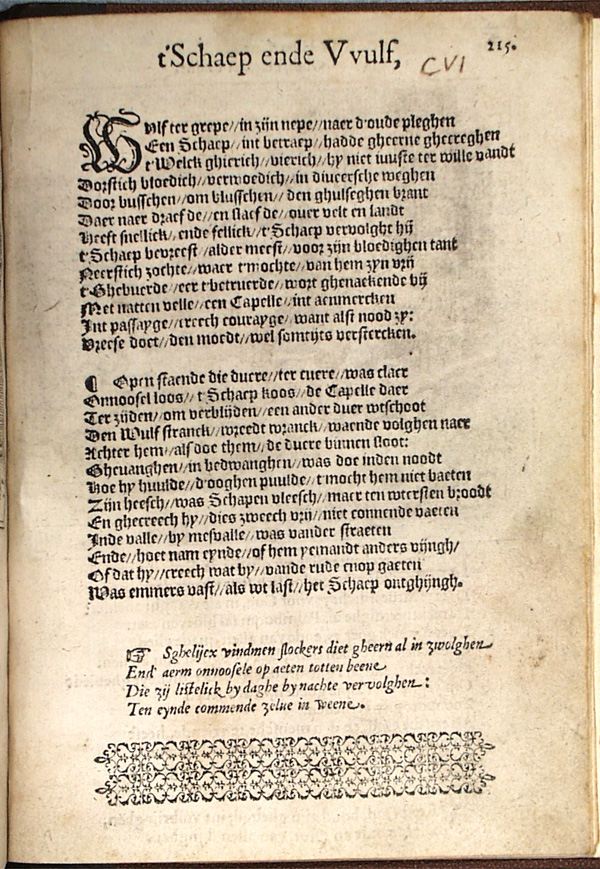 t'Schaep ende Vvulf,
215.
CVI
Wulf ter grepe//in zijn nepe//naer d'oude pleghen
Een Schaep//int betraep//hadde gheerne ghecreghen
t'Welck ghierich//vierich//hy niet wuste ter wille vandt
Dorstich bloedich//verwoedich//in diveersche weghen
Door busschen//om blusschen//den ghulseghen brant
Daer naer draefde//en slaefde//over velt en landt
Heeft snellick//ende fellick//t'Schaep vervolght hij
t'Schaep bevreest//alder meest//voor zijn bloedighen tant
Neerstich zochte//waer t'mochte//van hem zyn vrij
t'Ghebuerde//eer t'betruerde//wort ghenaeckende bij
Met natten velle//een Capelle//int aenmercken
Int passayge//creech courayge//want alst nood zy:
Vreese doet//den moedt//wel somtijts verstercken.
¶ Open staende die duere//ter cuere//was claer
Onnoosel loos//t'Schaep koos//de Capelle daer
Ter zijden//om verblijden//een ander duer wtschoot
Den Wulf stranck//wreedt wranck//waende volghen naer
Achter hem//als doe them//de duere binnen sloot:
Ghevanghen//in bedwanghen//was doe inden noodt
Hoe hy huulde//d'ooghen puulde//t'mocht hem niet baeten
Zijn heesch//was Schapen vleesch//maer ten wtersten broodt
En ghecreech hy//dies zweech vrij//niet connende vaeten
Inde valle//by mesvalle//was vander straeten
Ende//hoet nam eynde//of hem yemandt anders vijngh/
Of dat hy//creech wat by//vande rude cnop gaeten
Was emmers vast//als wt last//het Schaep ontghijngh.
☞ Sghelijcx vindmen slockers diet gheern al in zwolghen
End' aerm onnoosele op aeten totten beene
Die zij listelick by daghe by nachte vervolghen:
Ten eynde commende zelue in weene.